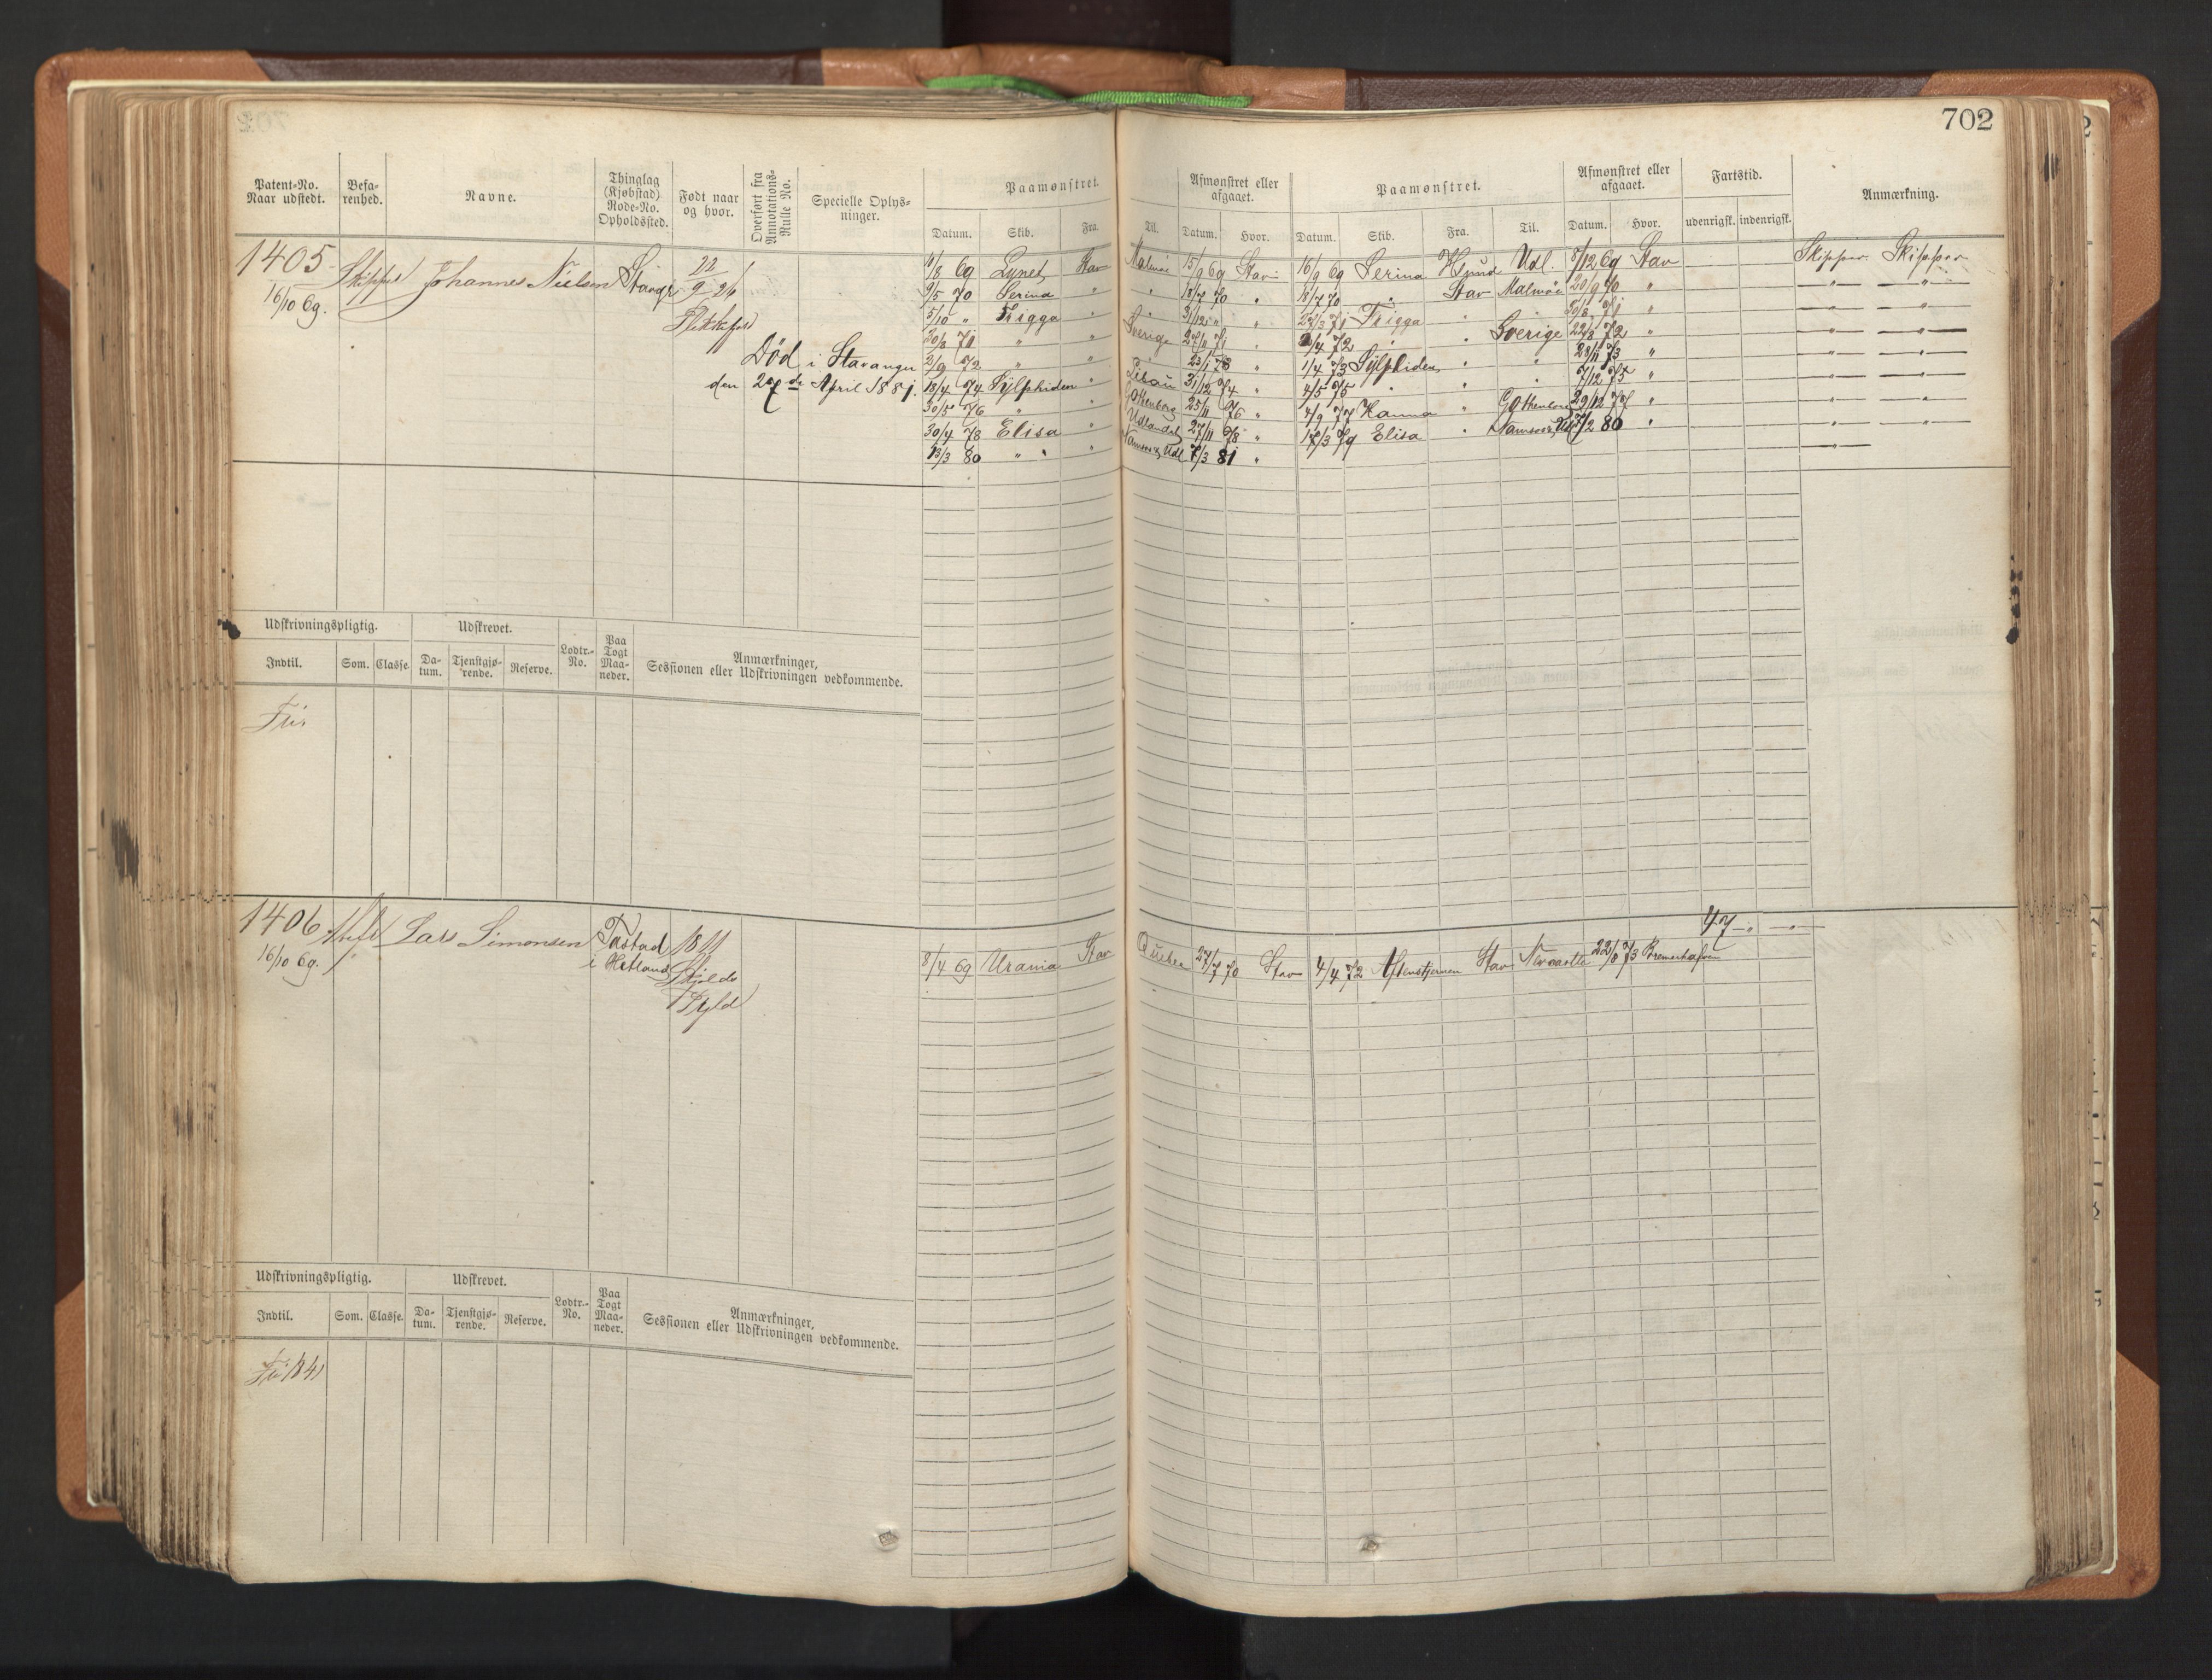 702
Patent-No. Naar udstedt. Befa-renhed. Navne. Thinglag (Kjøbstad) Rode-No. Opholdssted. Født naar og hvor. Overført fra Annotations-Rulle No. Specielle Oplys-ninger. Paamønstret. Afmønstret eller afgaaet. Paamønstret. Afmønstret eller afgaaet. Fartstid. Anmærkning.
Datum. Skib. Fra. Til. Datum. Hvor. Datum. Skib. Fra. Til. Datum. Hvor. udenrigsk. indenrigsk.
1405 Skipper Johannes Nielsen 22/9 26
16/10 69.
Død i Stavanger
April 1881.
1/8 69 Lynet Stav Malmøe 15/9 69 Stav 16/9 69 Serina Udl. 5/12 69 Stav Skipper Skipper
9/5 70 Serina " " 18/7 70 " 18/7 70 " Stav Malmøe 20/9 70 " —"— —"—
5/10 " Frigga " " 31/12 " " 27/3 71 Frigga " " 20/8 71 " —"— —"—
20/8 71 " " Sverige 27/11 71 " 2/4 72 " " Sverige 22/8 72 " —"— —"—
2/9 72 " " " 23/1 73 " 1/4 73 Sylphiden " " 28/11 73 " —"— —"—
18/4 74 Sylphiden " Libau 31/12 74 " 4/5 75 " " " 7/12 75 " —"— —"—
30/5 76 " " Gothenborg 25/11 76 " 4/9 77 Hanna " Gothenborg 29/12 77 " —"— —"—
30/4 78 Elisa " Udlandet 27/11 78 " 17/3 79 Elisa " Namsos, Udl 7/2 80 " —"— —"—
13/3 80 " " " Namsos, Udl 7/3 81 " —"—
Udskrivningspligtig. Udskrevet. Lodtr.-No. Paa Togt Maa-neder. Anmærkninger, Sessionen eller Udskrivningen vedkommende.
Indtil. Som. Classe. Da-tum. Tjenstgjø-rende. Reserve.
Fri
1406 Lars Simonsen Tastad 1811
16/10 69. i Hetland Skjolds
47 " —"—
8/4 69 Urania Stav Quebec 27/7 70 Stav 4/4 72 Aftenstjernen Stav Newcastle 22/8 73 Bremerhafen
Udskrivningspligtig. Udskrevet. Lodtr.-No. Paa Togt Maa-neder. Anmærkninger, Sessionen eller Udskrivningen vedkommende.
Indtil. Som. Classe. Da-tum. Tjenstgjø-rende. Reserve.
Fri 1841